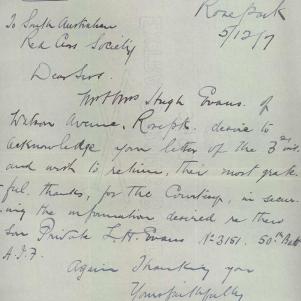 Rose Park
5/12/17
To South Australian
Red Cross Society
Dear Sirs.
Mr & Mrs Hugh Evans. of
Watson Avenue. Rose Pk. desire to
acknowledge your letter of the 3rd inst.
and wish to return, their most grate
ful. thanks, for the Courtesy, in secur-
ing the information desired re their
Son Private L. H. Evans No 3151. 50th Batt
A.I.F.
Again Thanking you
Yours faithfully